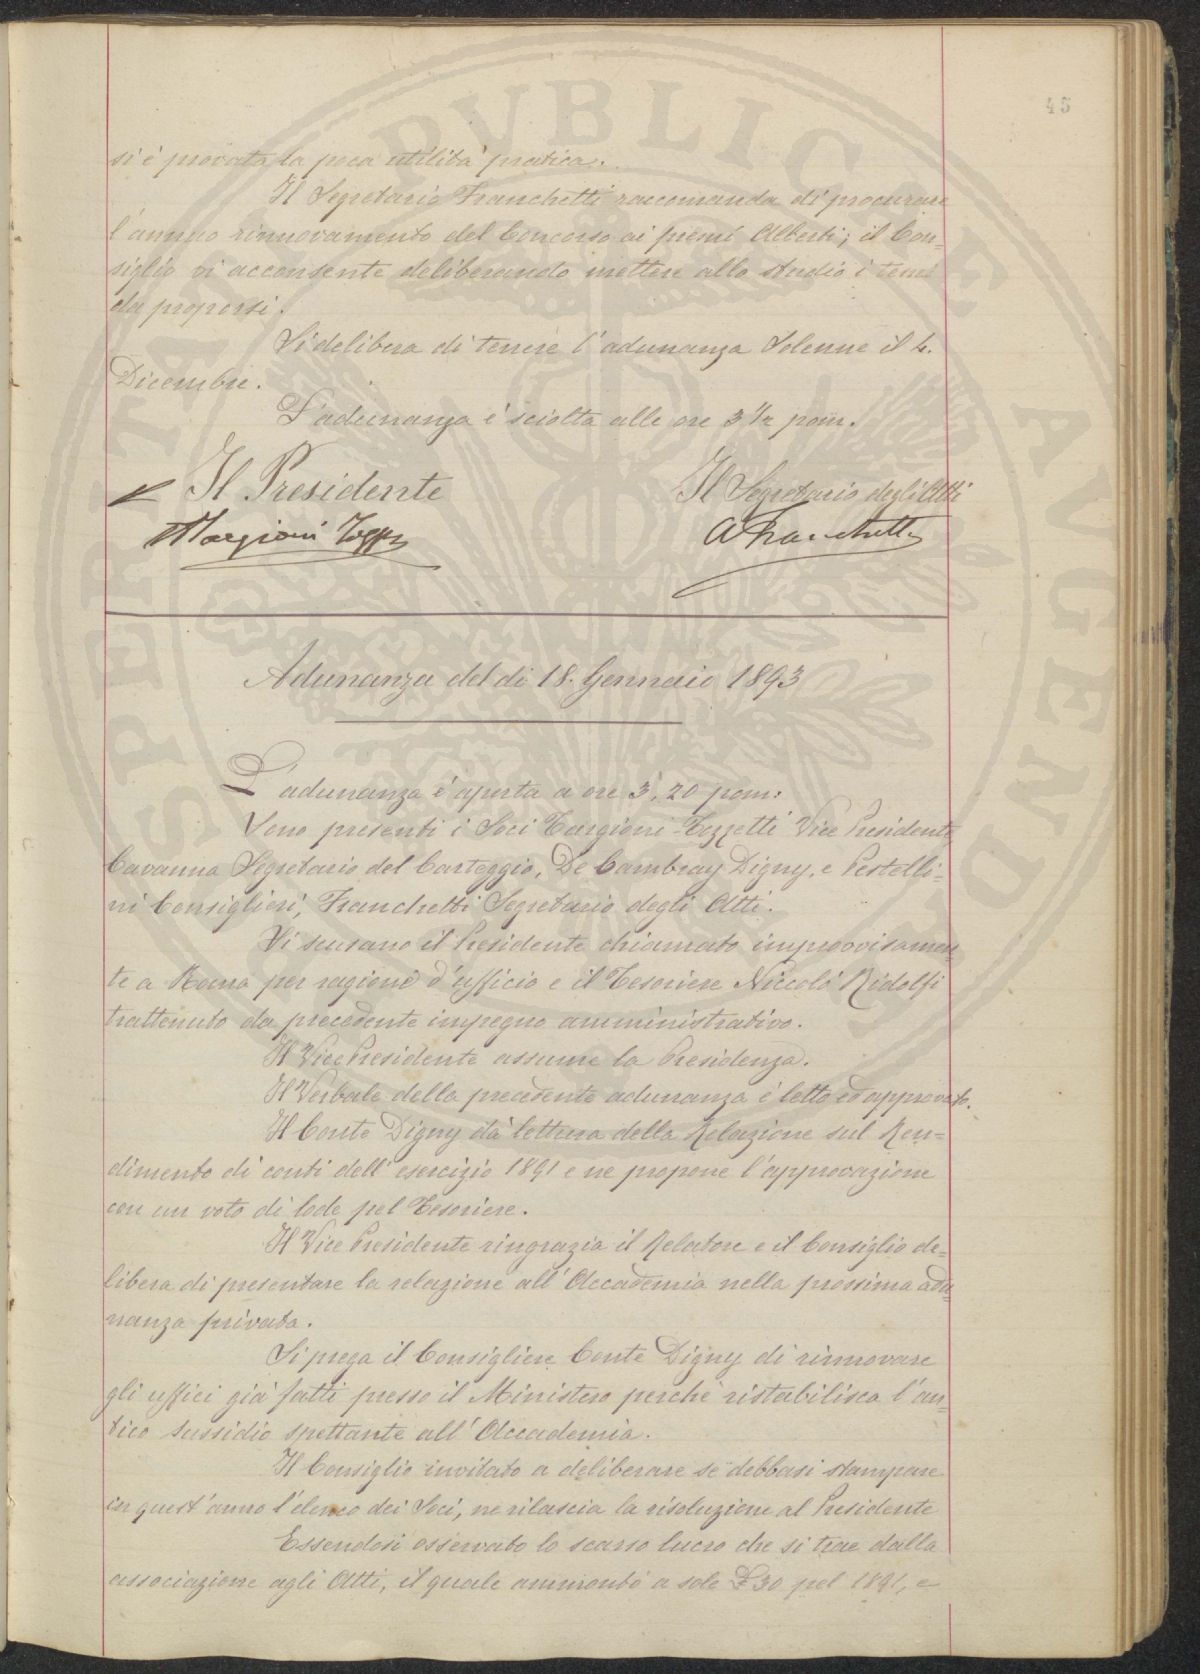 45
si è provata la poca utilità pratica.
Il Segretario Franchetti raccomanda di procurare
l'annuo rinnovamento del Concorso ai premi Alberti; il Con=
siglio vi acconsente deliberando mettere allo studio i temi
da proporsi.
Si delibera di tenere l'adunanza Solenne il 4.
Dicembre.
L'adunanza è sciolta alle ore 3 1/2 pom.
Il Presidente
Il Segretario degli Atti
Targioni Tozz
A Franchetti
Adunanza del dì 18. Gennaio 1893
L'adunanza è aperta a ore 3, 20 pom:
Sono presenti i Soci Targioni-Tozzetti Vice Presidente
Cavanna Segretario del Carteggio, De Cambray Digny, e Pestelli=
ni Consiglieri, Franchetti Segretario degli Atti.
Si scusano il Presidente chiamato improvvisamen
te a Roma per ragioni d'ufficio e il Tesoriere Niccolò Ridolfi
trattenuto da precedente impegno amministrativo.
Il Vice Presidente assume la Presidenza.
Il Verbale della precedente adunanza è letto ed approvato.
Il Conte Digny dà lettura della Relazione sul Ren=
dimento di conti dell'esercizio 1891 e ne propone l'approvazione
con un voto di lode pel Tesoriere.
Il Vice Presidente ringrazia il Relatore e il Consiglio de=
libera di presentare la relazione all'Accademia nella prossima adu=
nanza privata.
Si prega il Consigliere Conte Digny di rinnovare
gli uffici già fatti presso il Ministero perchè ristabilisca l'an
tico sussidio spettante all'Accademia.
Il Consiglio invitato a deliberare se debbasi stampare
in quest'anno l'elenco dei Soci, ne rilascia la risoluzione al Presidente
Essendosi osservato lo scarso lucro che si trae dalla
associazione agli Atti, il quale ammontò a sole £ 30 pel 1891, e
PVBLICAE AVGEND
SPEI